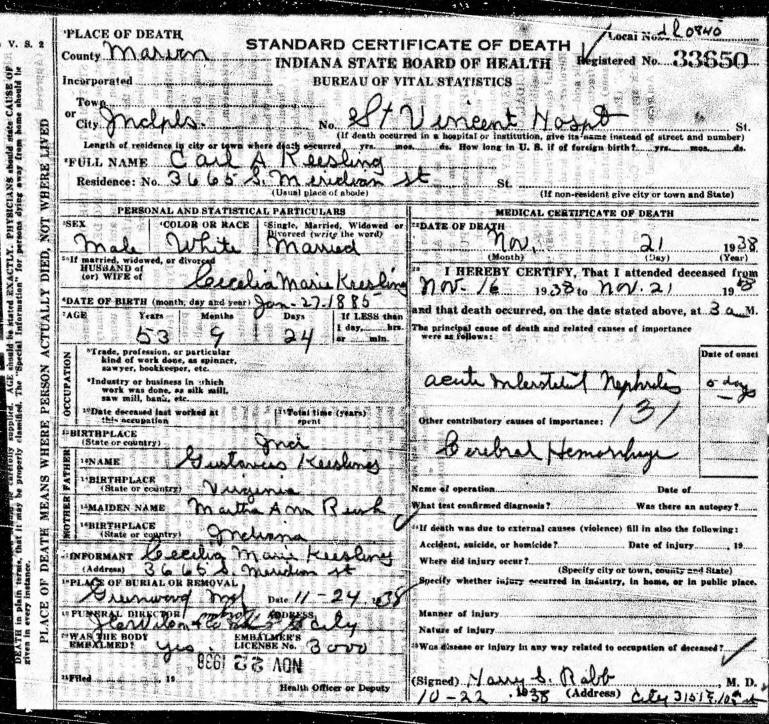 V. S. 2
PLACE OF DEATH
County Marion
STANDARD CERTIFICATE OF DEATH
INDIANA STATE BOARD OF HEALTH
BUREAU OF VITAL STATISTICS
Local No.
Registered No. 33650
Incorporated
Town
or
City Indpls. No. St Vincent Hospt St.
(If death occurred in a hospital or institution, give its name instead of street and number)
Length of residence in city or town where death occurred yrs. mos. ds. How long in U. S. if of foreign birth? yrs. mos. ds.
FULL NAME Carl A Keesling
Residence: No. 3665 S. Meridian st St.
(Usual place of abode) (If non-resident give city or town and State)
PERSONAL AND STATISTICAL PARTICULARS
SEX COLOR OR RACE Single, Married, Widowed or Divorced (write the word)
Male White Married
If married, widowed, or divorced
HUSBAND of
(or) WIFE of Cecelia Marie Keesling
DATE OF BIRTH (month, day and year) Jan-27-1885
AGE Years Months Days If LESS than
53 9 24 1 day, hrs.
or min.
OCCUPATION
Trade, profession, or particular
kind of work done, as spinner,
sawyer, bookkeeper, etc.
Industry or business in which
work was done, as silk mill,
saw mill, bank, etc.
Date deceased last worked at
this occupation
Total time (years)
spent
BIRTHPLACE
(State or country) Ind
FATHER
NAME Gustavus Keesling
BIRTHPLACE
(State or country) Virginia
MOTHER
MAIDEN NAME Martha Ann Rush
BIRTHPLACE
(State or country) Indiana
INFORMANT Cecelia Marie Keesling
(Address) 3665 S. Meridian st
PLACE OF BURIAL OR REMOVAL
Greenwood Ind Date 11-24 1938
FUNERAL DIRECTOR ADDRESS
City
WAS THE BODY
EMBALMED? yes
EMBALMER'S
LICENSE No. 3000
NOV 22 1938
Filed 19
Health Officer or Deputy
MEDICAL CERTIFICATE OF DEATH
DATE OF DEATH
Nov, 21 1938
(Month) (Day) (Year)
I HEREBY CERTIFY, That I attended deceased from
Nov-16 1938 to Nov. 21 1938
and that death occurred, on the date stated above, at 3 a M.
The principal cause of death and related causes of importance
were as follows:
Date of onset
acute interstitial Nephritis days
Other contributory causes of importance: 131
Cerebral Hemorrhage
Name of operation Date of
What test confirmed diagnosis? Was there an autopsy?
If death was due to external causes (violence) fill in also the following:
Accident, suicide, or homicide? Date of injury 19
Where did injury occur?
(Specify city or town, county and State)
Specify whether injury occurred in industry, in home, or in public place.
Manner of injury
Nature of injury
Was disease or injury in any way related to occupation of deceased?
(Signed) Harry S. Rabb M. D.
10-22 1938 (Address) City
PLACE OF DEATH MEANS WHERE PERSON ACTUALLY DIED, NOT WHERE LIVED
carefully supplied. AGE should be stated EXACTLY. PHYSICIANS should state CAUSE OF
DEATH in plain terms, that it may be properly classified. The "Special Information" for persons dying away from home should be
given in every instance.